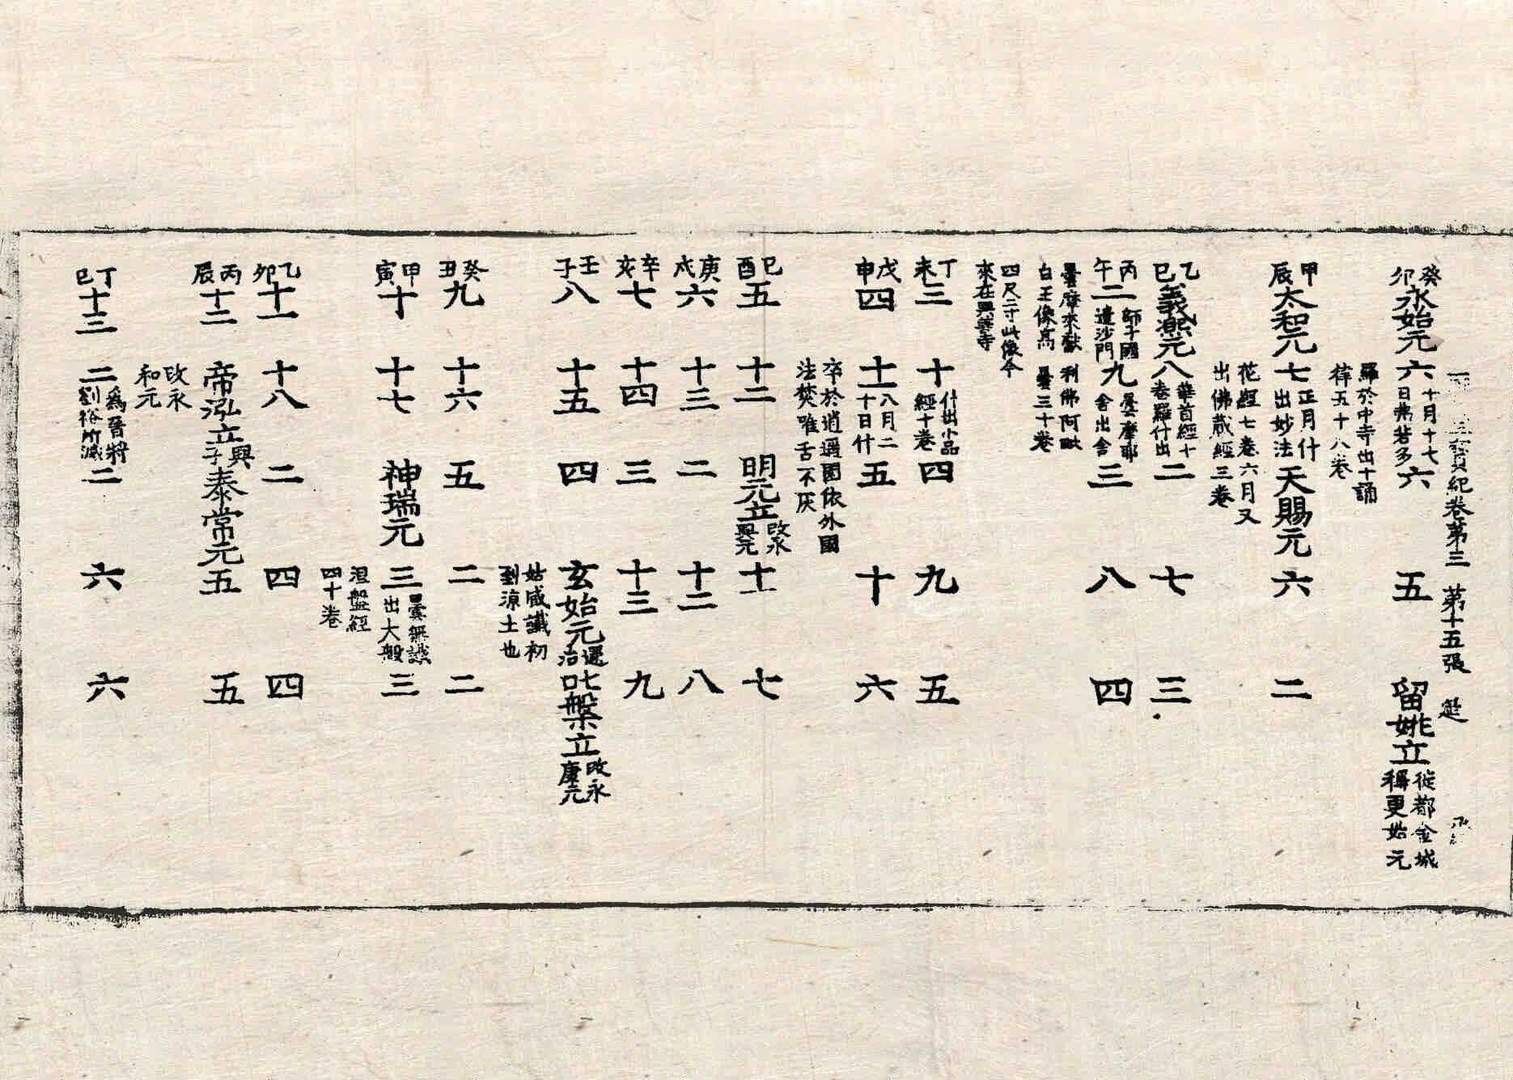 寶紀卷第三 第十五張
癸卯永始元 六十月十七日弗若多六 五 留姚立徙都金城稱更始元
羅於中寺出十誦
律五十八卷
甲辰太和元 七正月什出妙法天賜元 六 二
花經七卷六月又
出佛藏經三卷
乙巳義熙元 八華首經十卷羅什出二 七 三
丙午二師子國遣沙門九曇摩耶舍出舍三 八 四
曇摩來獻 利弗阿毗
白玉像高 曇三十卷
四尺二寸此像今
來在興善寺
丁未三 十什出小品經十卷四 九 五
戊申四 十一八月二十日什五 十 六
卒於逍遙園依外國
法焚唯舌不灰
己酉五 十二 明元立改永興元 十一 七
庚戌六 十三 二 十二 八
辛亥七 十四 三 十三 九
壬子八 十五 四 玄始元遷治吒槃立改永康元
姑臧讖初
到涼土也
癸丑九 十六 五 二 二
甲寅十 十七 神瑞元 三曇無讖出大般三
涅盤經
四十卷
乙卯十一 十八 二 四 四
丙辰十二 帝泓立興子泰常元 五 五
改永
和元
丁巳十三 二為晉將劉裕所滅二 六 六